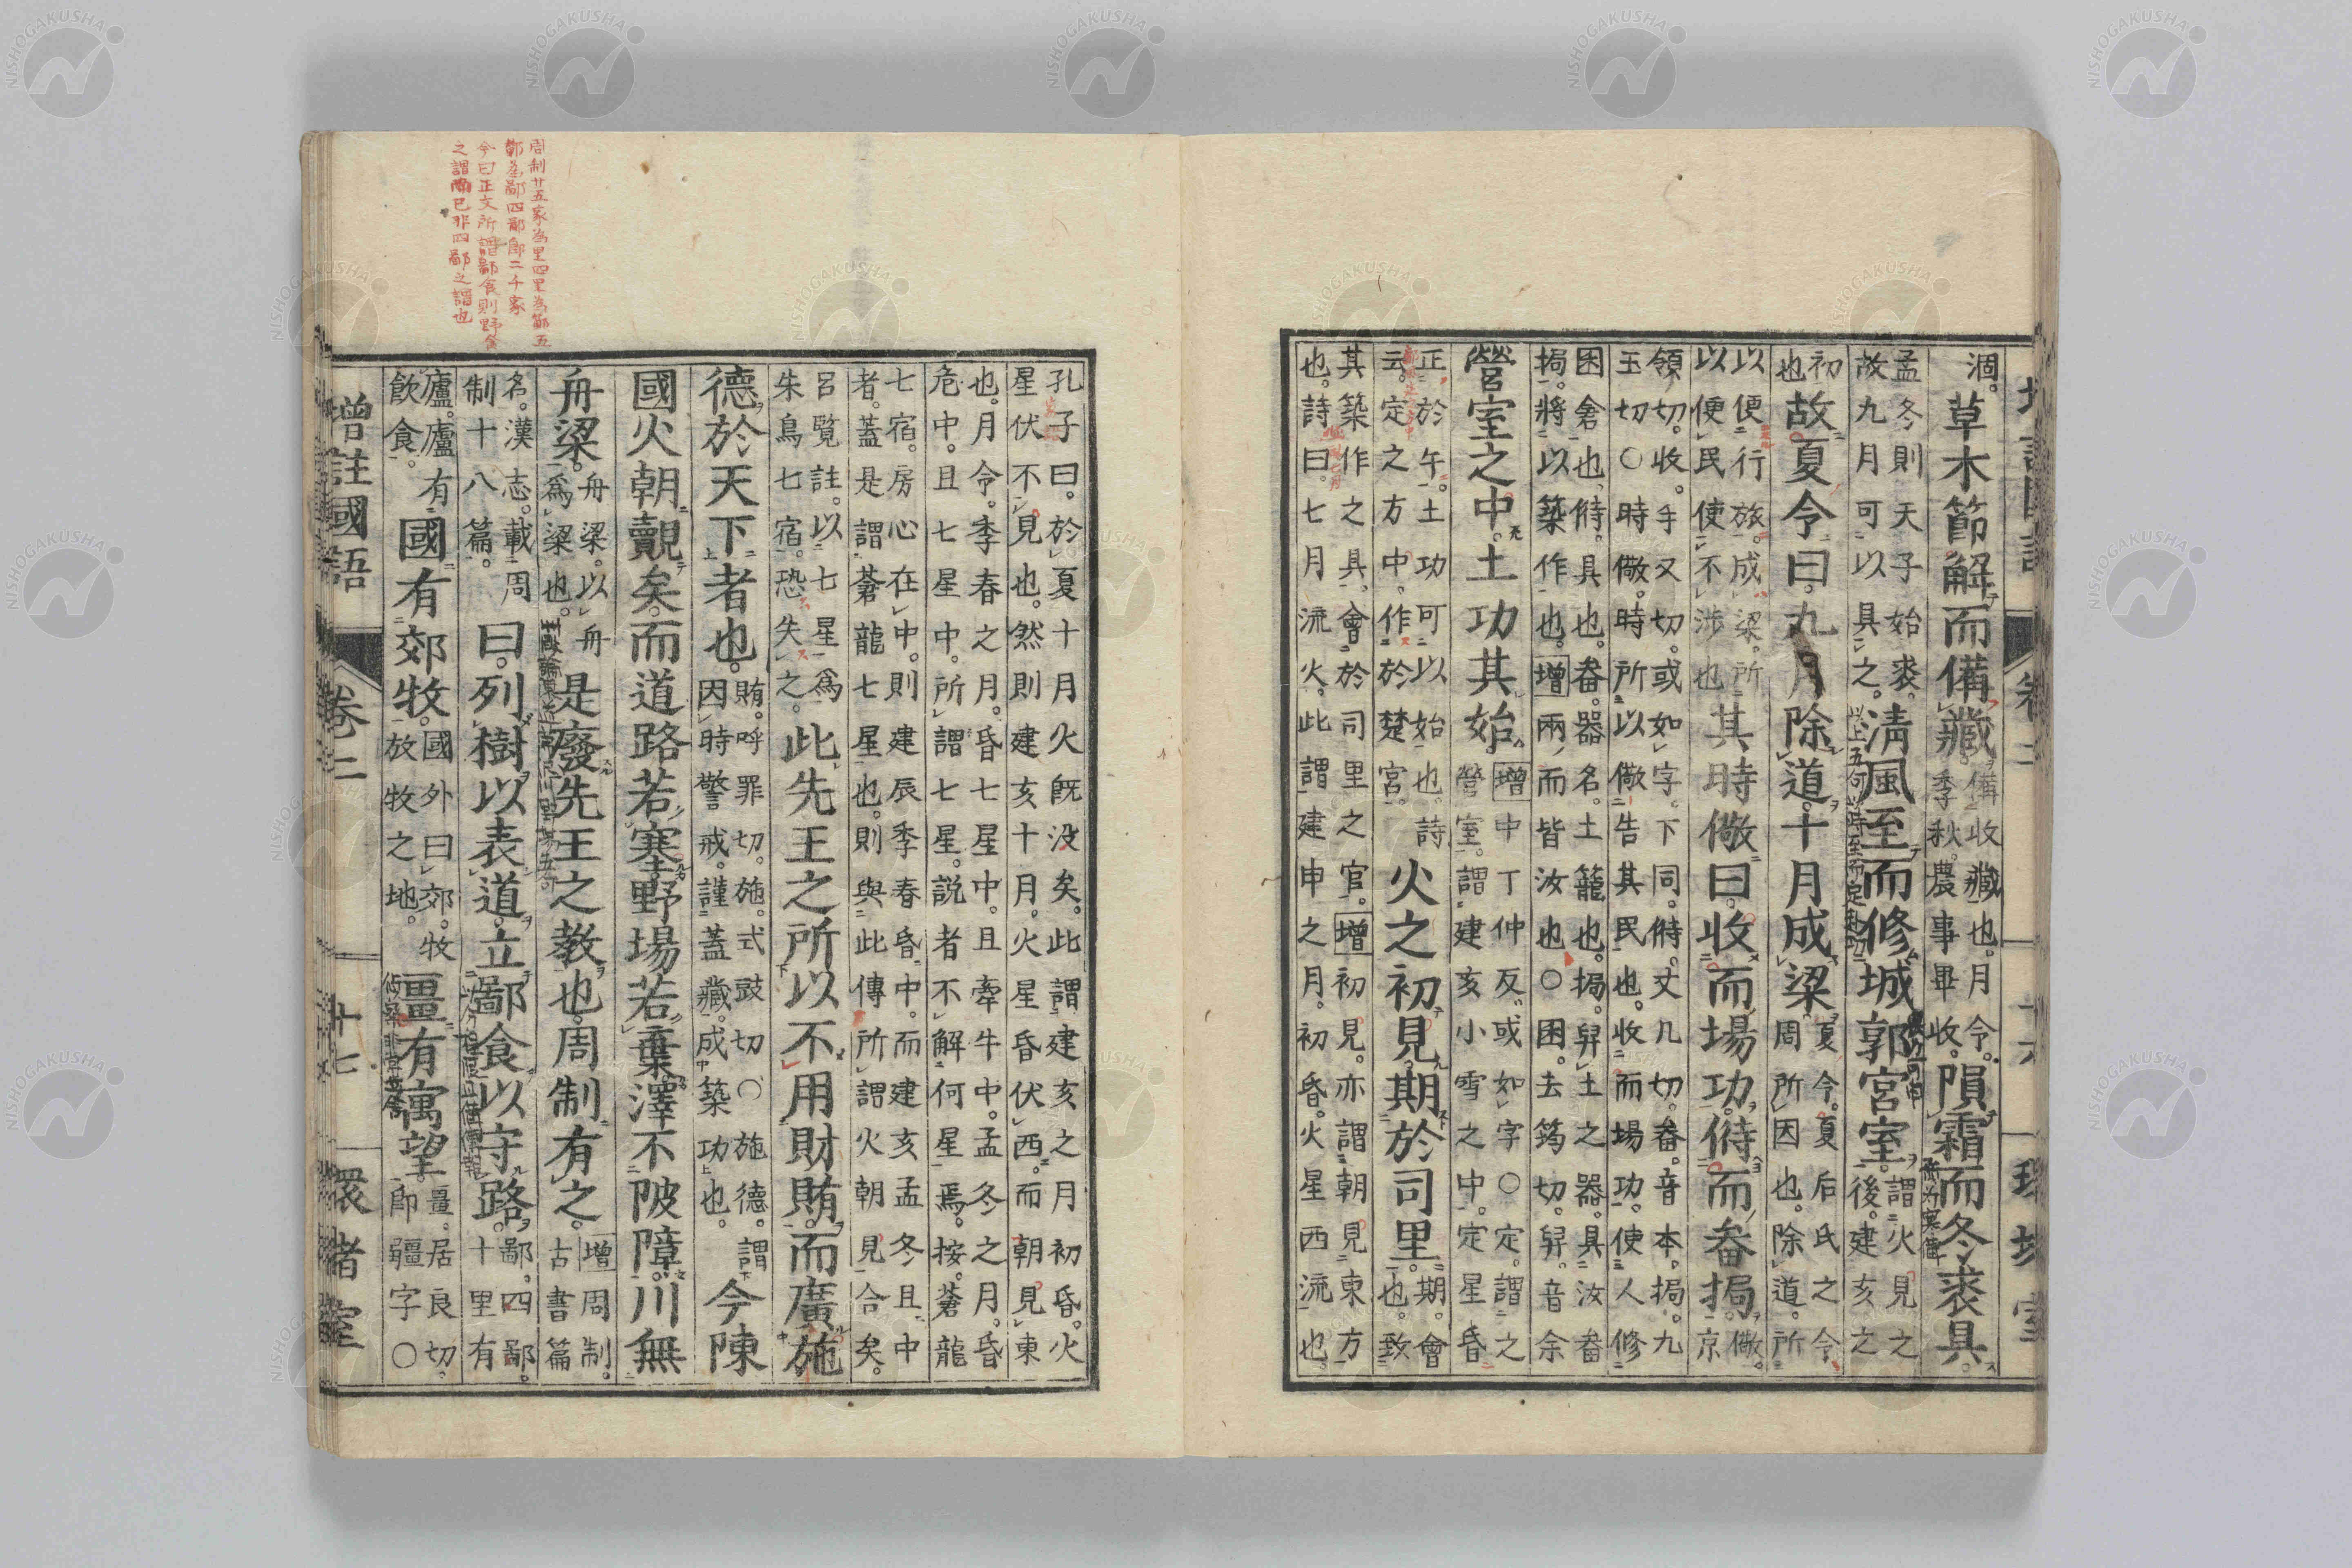 涸。草木節解而備藏。備收藏也。月令。季秋。農事畢收。隕霜而冬裘具。
孟冬則天子始裘。故九月可以具之。清風至而修城郭宮室。謂火見之後。建亥之
初也故夏令曰。九月除道。十月成梁。夏令。夏后氏之令。周所因也。除道。所
以便行旅。成梁。所以便民使不涉也其時儆曰。收而場功。偫而畚挶。儆。京
領切。收。手又切。或如字。下同。偫。丈几切。畚。音本。挶。九玉切○時儆。時所以儆告其民也。收而場功。使人修
囷倉也。偫。具也。畚。器名。土籠也。挶。舁土之器。具汝畚挶。將以築作也。增兩而皆汝也○囷。去筠切。舁。音余
營室之中。土功其始。增中丁仲反。或如字○定。謂之營室。謂建亥小雪之中。定星昏
正於午。土功可以始也。詩云。定之方中。作於楚宮。火之初見。期於司里。期。會也。致
其築作之具。會於司里之官。增初見。亦謂朝見東方也。詩曰。七月流火。此謂建申之月。初昏。火星西流也。
周制廿五家為里四里為酇五
酇為鄙四鄙郎二千家
今曰正文所謂鄙食則野舍
之謂而已非四鄙之謂也
孔子曰。於夏十月火既没矣。此謂建亥之月初昏。火星伏不見也。然則建亥十月。火星昏伏西。而朝見東
也。月令。季春之月。昏七星中。且牽牛中。孟冬之月。昏危中。且七星中。所謂七星。説者不解何星焉。按。蒼龍
七宿。房心在中。則建辰季春昏中。而建亥孟冬且中者。蓋是謂蒼龍七星也。則與此傳所謂火朝見合矣。
呂覽註。以七星爲朱鳥七宿。恐失之。此先王之所以不用財賄。而廣施
德於天下者也。賄。呼罪切。施。式豉切○施德。謂因時警戒。謹蓋藏。成築功也。今陳
國火朝覿矣。而道路若塞。野場若棄。澤不陂障。川無
舟梁。舟梁。以舟爲梁也。是廢先王之教也。周制有之。增周制。古書篇
名。漢志。載周制十八篇。曰。列樹以表道。立鄙食以守路。鄙。四鄙。十里有
廬。廬有飲食。國有郊牧。國外曰郊。牧放牧之地。畺有寓望。畺。居良切。即疆字○
增註國語 卷二 十七 環堵室
NISHOGAKUSHA